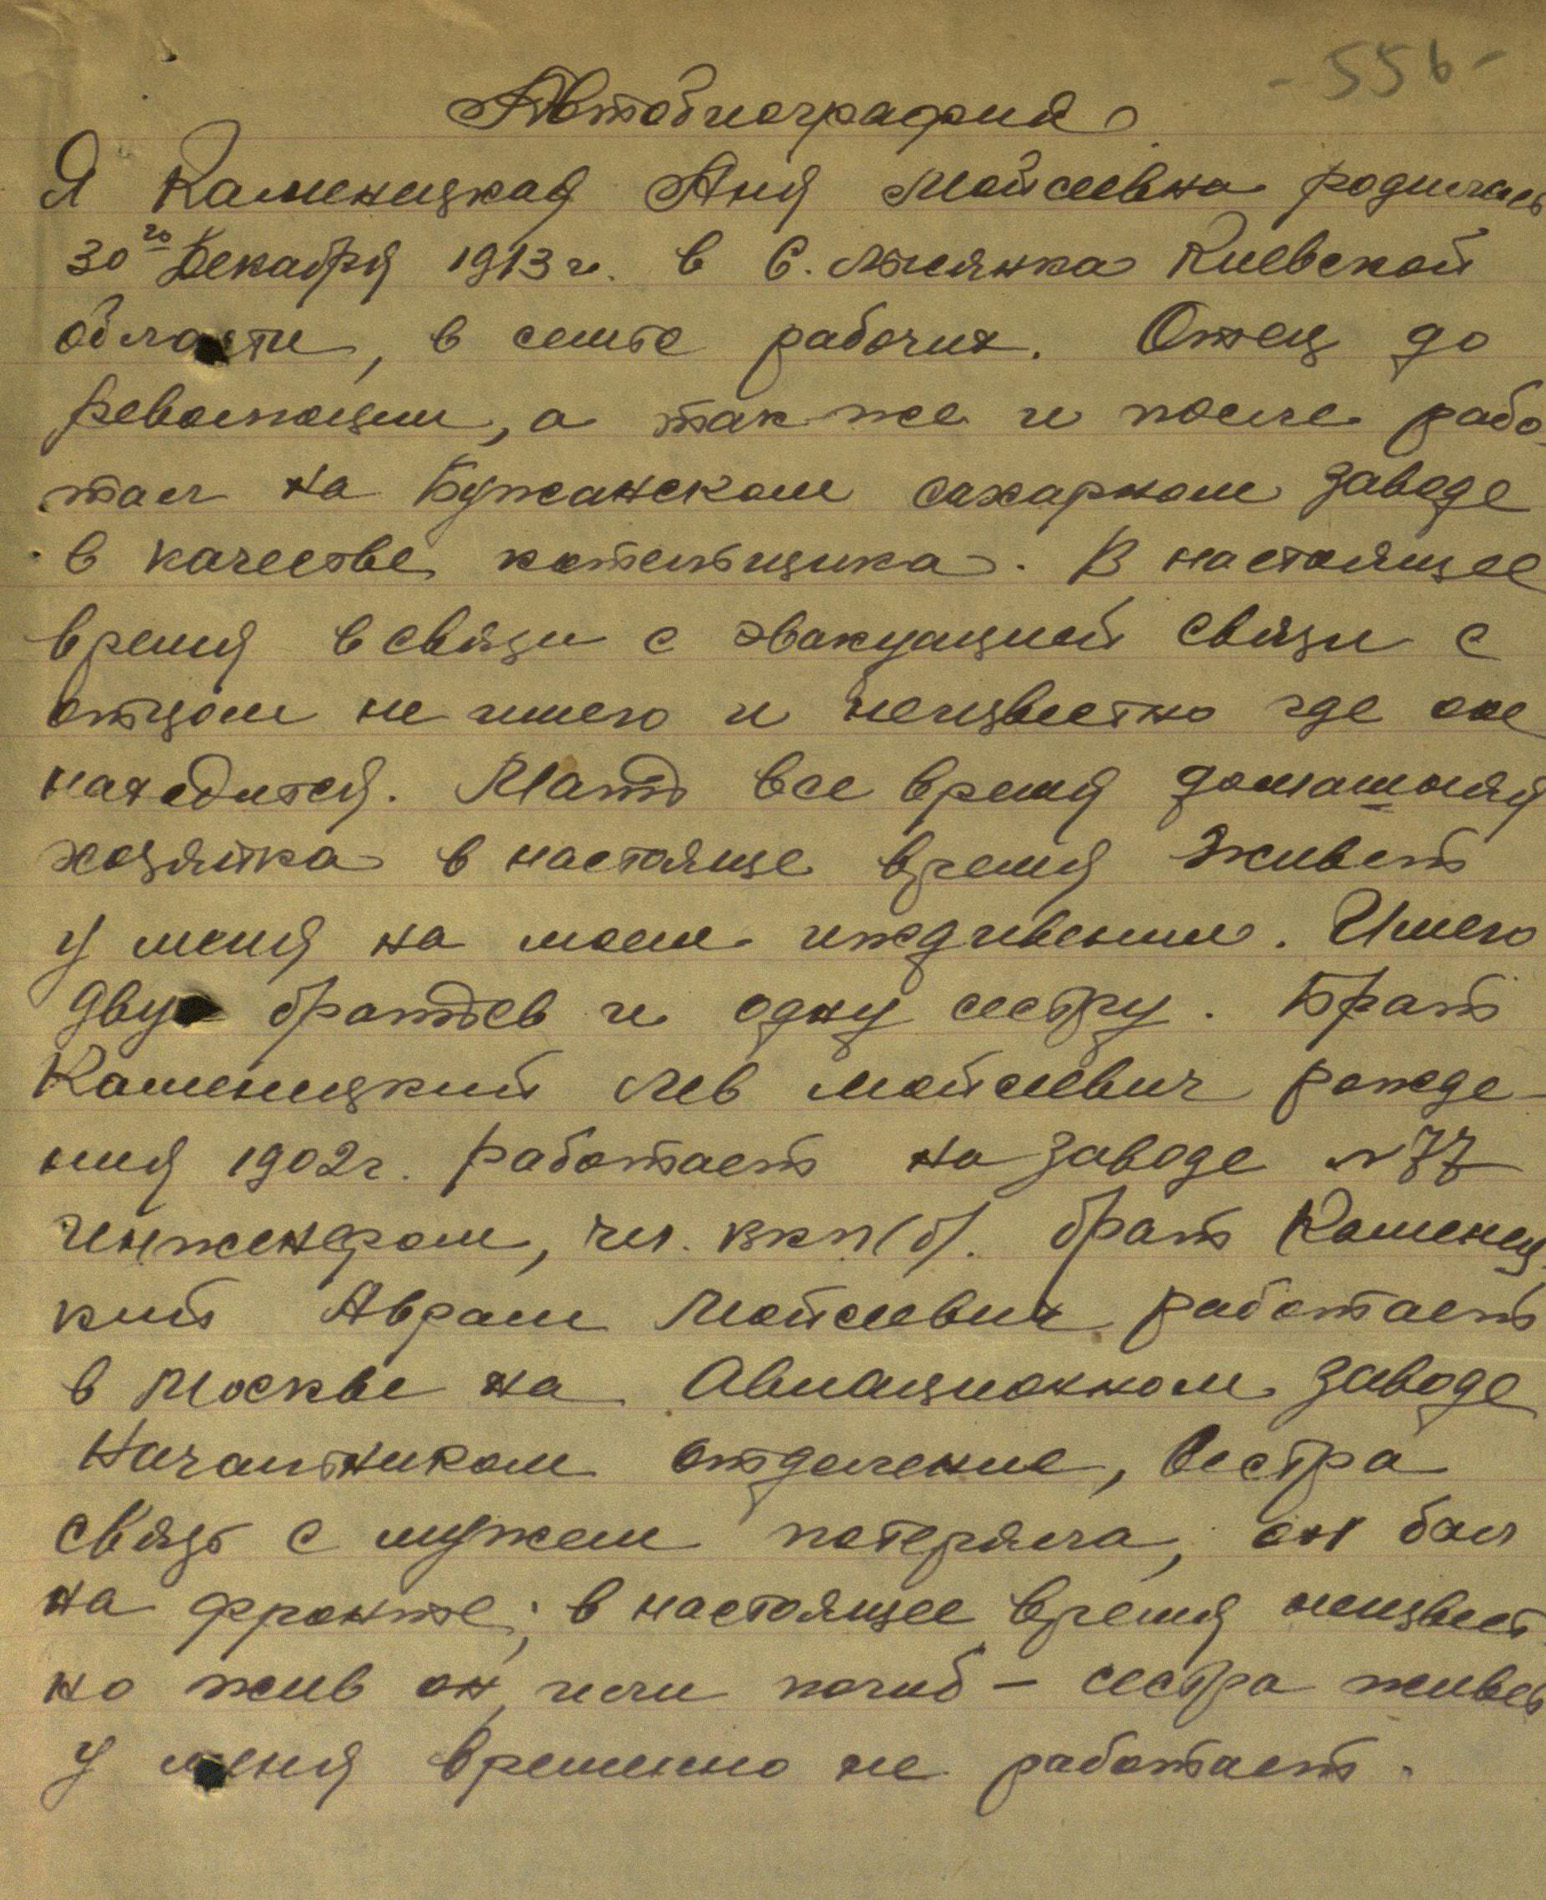 - 556 -
Автобиография
Я Каменецкая Аня Мойсеевна родилась
30го Декабря 1913 г. в с. Лысянка Киевской
области, в семье рабочих. Отец до
революции, а так же и после рабо-
тал на Бужанском сахарном заводе
в качестве котельщика. В настоящее
время в связи с эвакуацией связи с
отцом не имею и неизвестно где он
находится. Мать все время домашняя
хозяйка в настояще время живет
у меня на моем иждивении. Имею
двух братьев и одну сестру. Брат
Каменецкий Лев Мойсеевич рожде-
ния 1902 г. работает на заводе №77
инженером, чл. ВКП(б). брат Каменец-
кий Аврам Мойсеевич работает
в Москве на Авиационном заводе
Начальником отделение, Сестра
связь с мужем потеряла, он был
на фронте; в настоящее время неизвест-
но жив он, или погиб – сестра живет
у меня временно не работает.